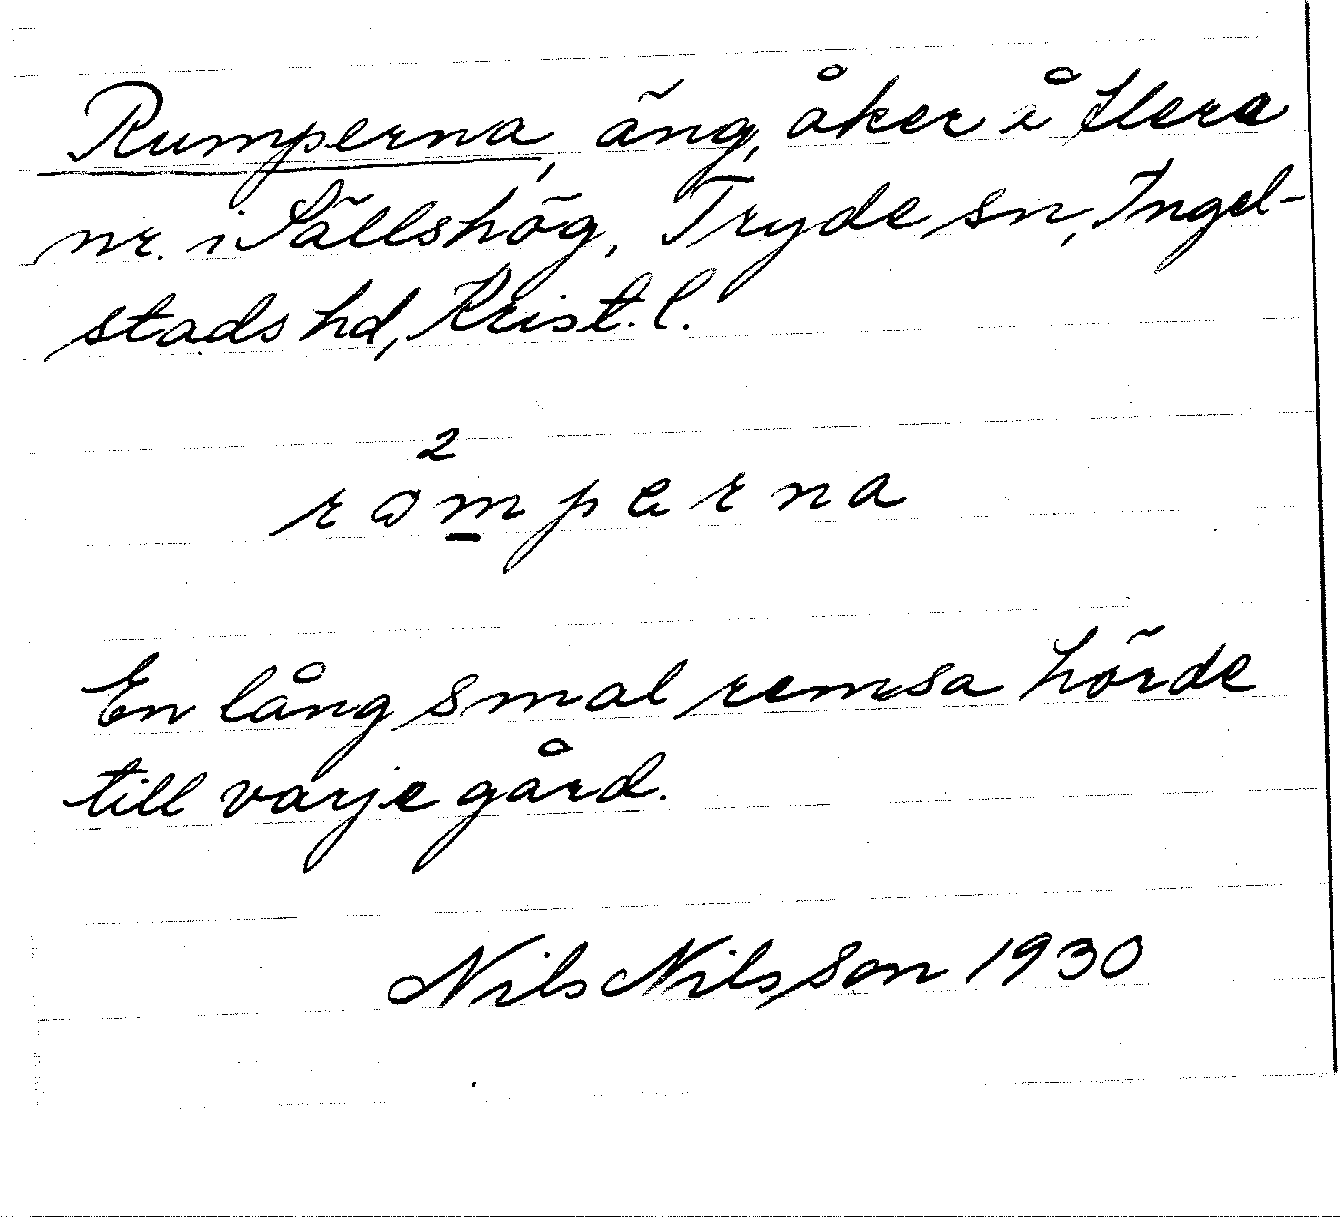 Rumperna, äng, åker å flera
nr. i Sällshög, Tryde sn, Ingel-
stads hd, Krist. l.
2
romperna
En lång smal remsa hörde
till varje gård.
Nils Nilsson 1930